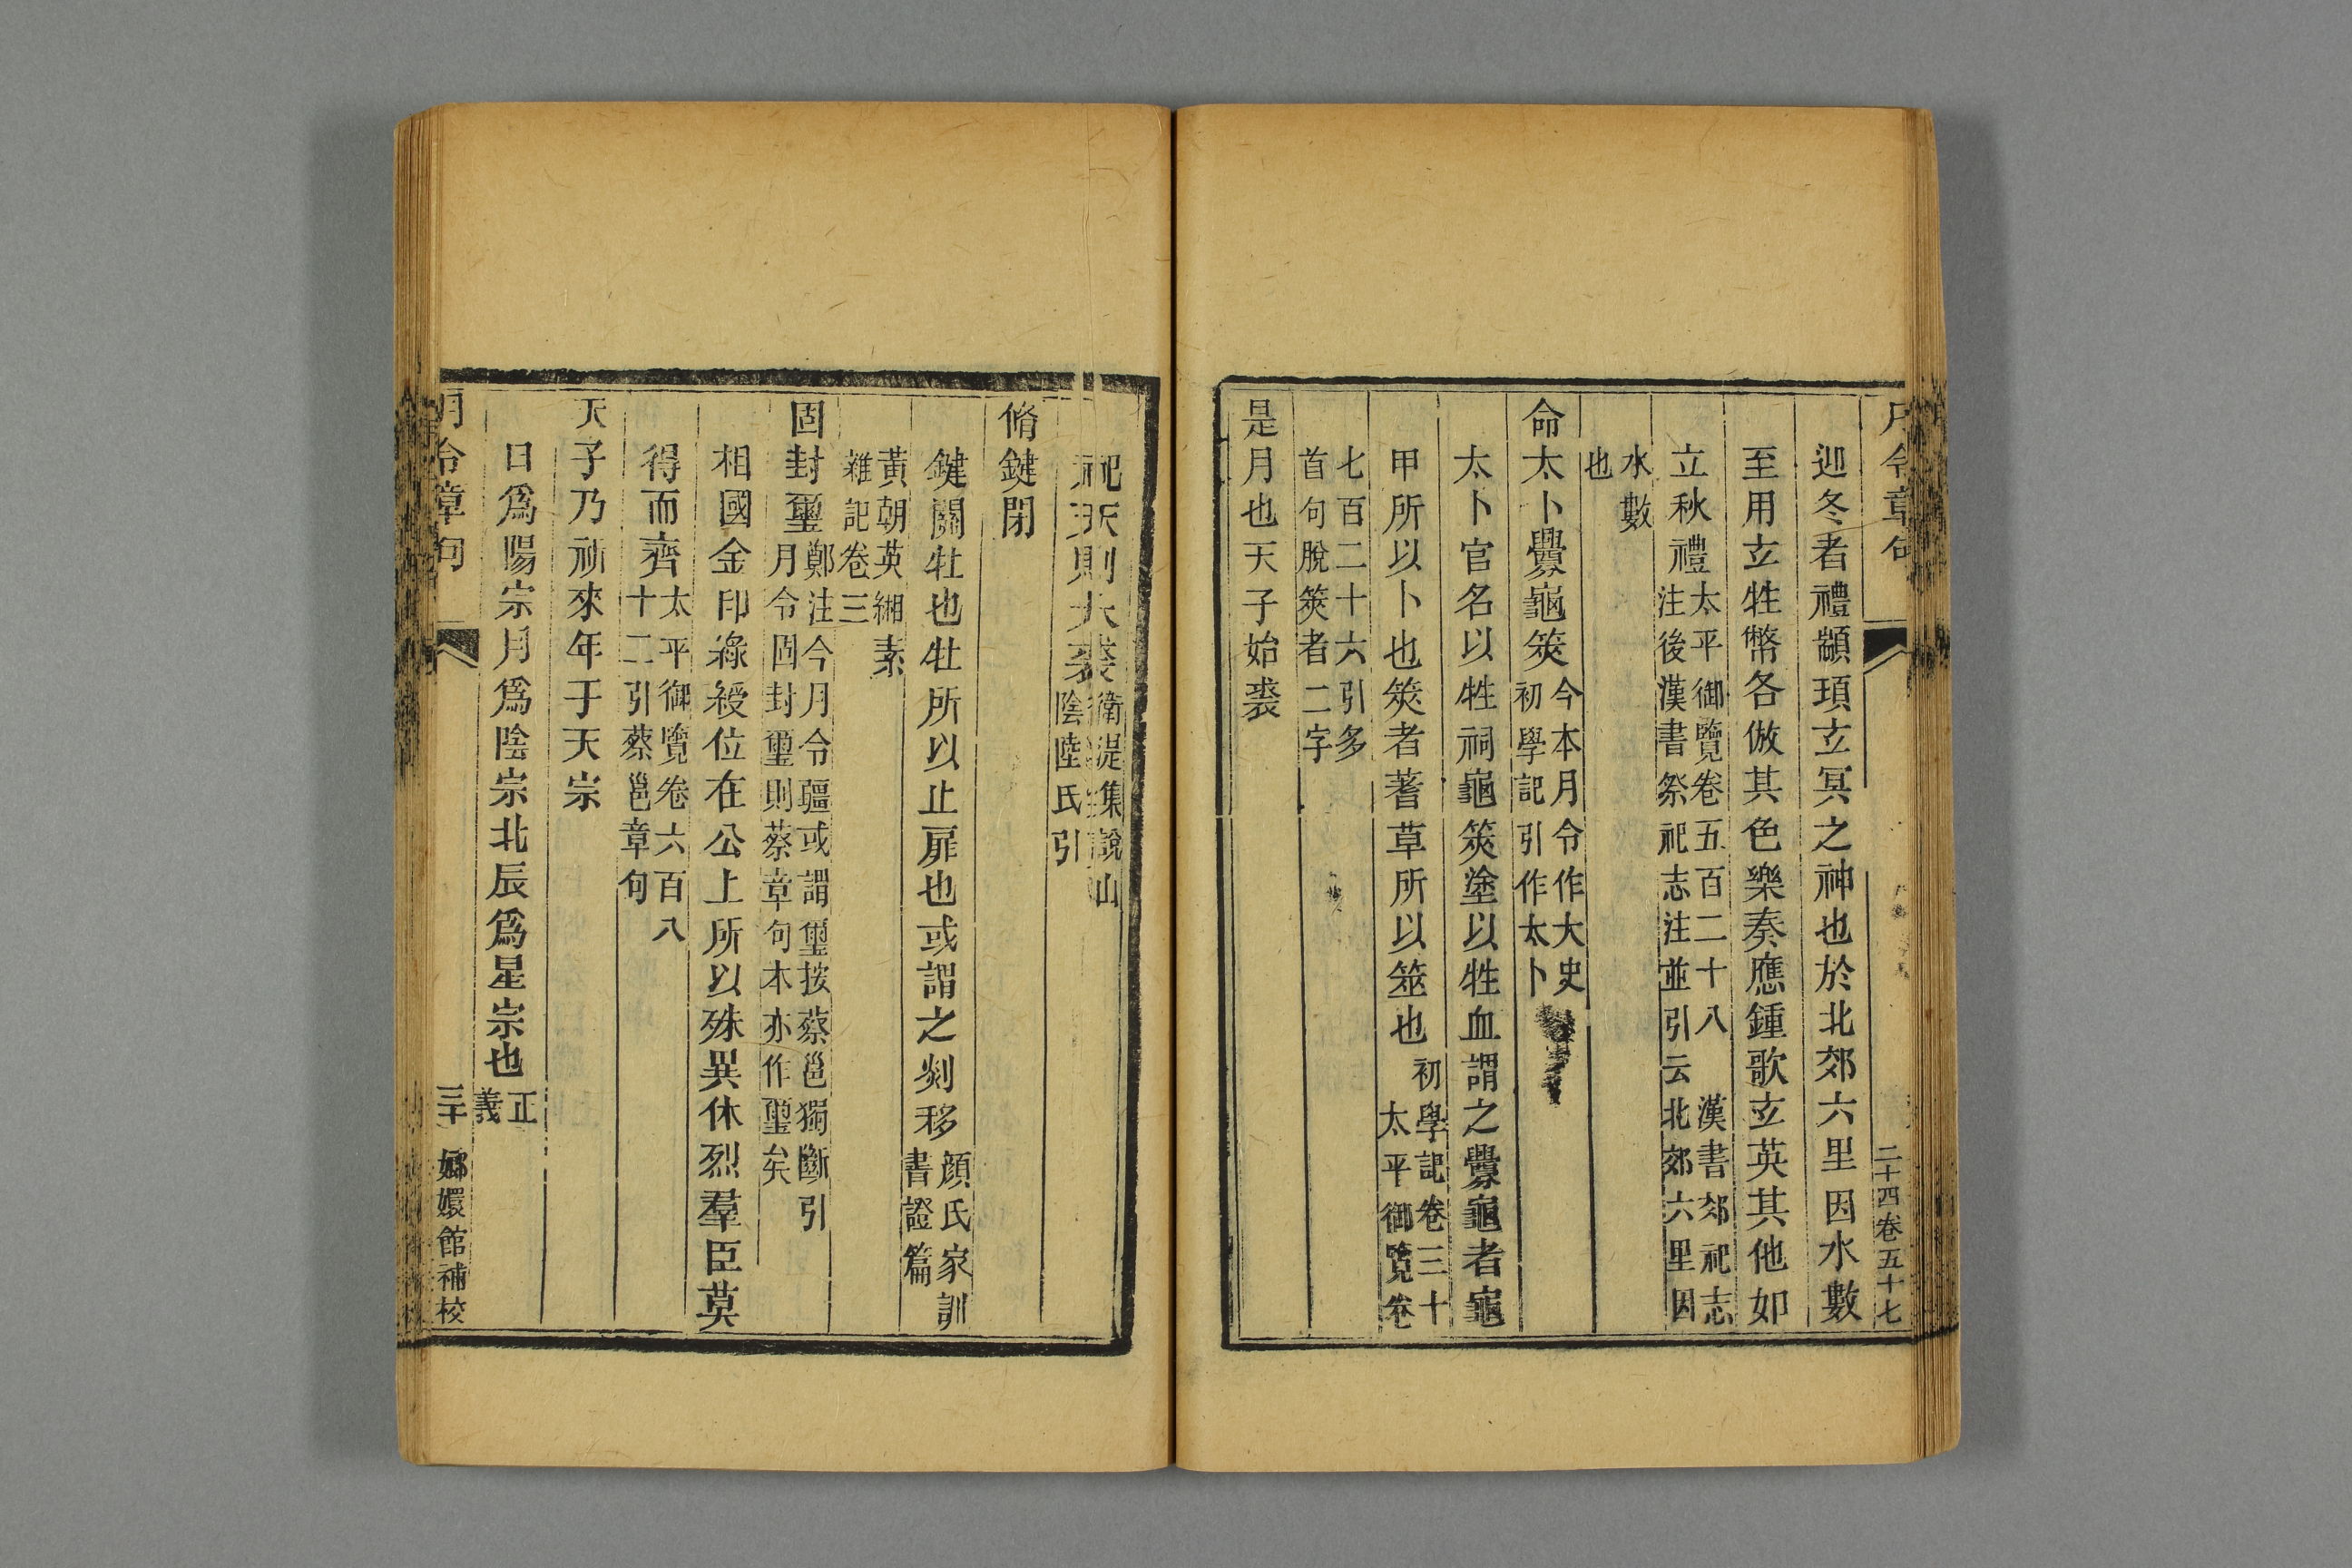 月令章句
二十四卷五十七
迎冬者禮顓頊玄冥之神也於北郊六里因水數
至用玄牲幣各倣其色樂奏應鍾歌玄英其他如
立秋禮太平御覽卷五百二十八 漢書郊祀志
注後漢書祭祀志注並引云北郊六里因
水數
也
命太卜釁龜筴今本月令作大史
初學記引作太卜
太卜官名以牲祠龜筴塗以牲血謂之釁龜者龜
甲所以卜也筴者蓍草所以筮也初學記卷三十
太平御覽卷
七百二十六引多
首句脫筴者二字
是月也天子始裘
祀天則大裘衛湜集說山
陰陸氏引
脩鍵閉
鍵關牡也牡所以止扉也或謂之剡移顏氏家訓
書證篇
黃朝英緗素
雜記卷三
固封璽鄭注今月令疆或謂璽按蔡邕獨斷引
月令固封璽則蔡章句本亦作璽矣
相國金印綠綬位在公上所以殊異休烈羣臣莫
得而齊太平御覽卷六百八
十二引蔡邕章句
天子乃祈來年于天宗
日為陽宗月為陰宗北辰為星宗也正
義
月令章句
三十
嫏嬛館補校